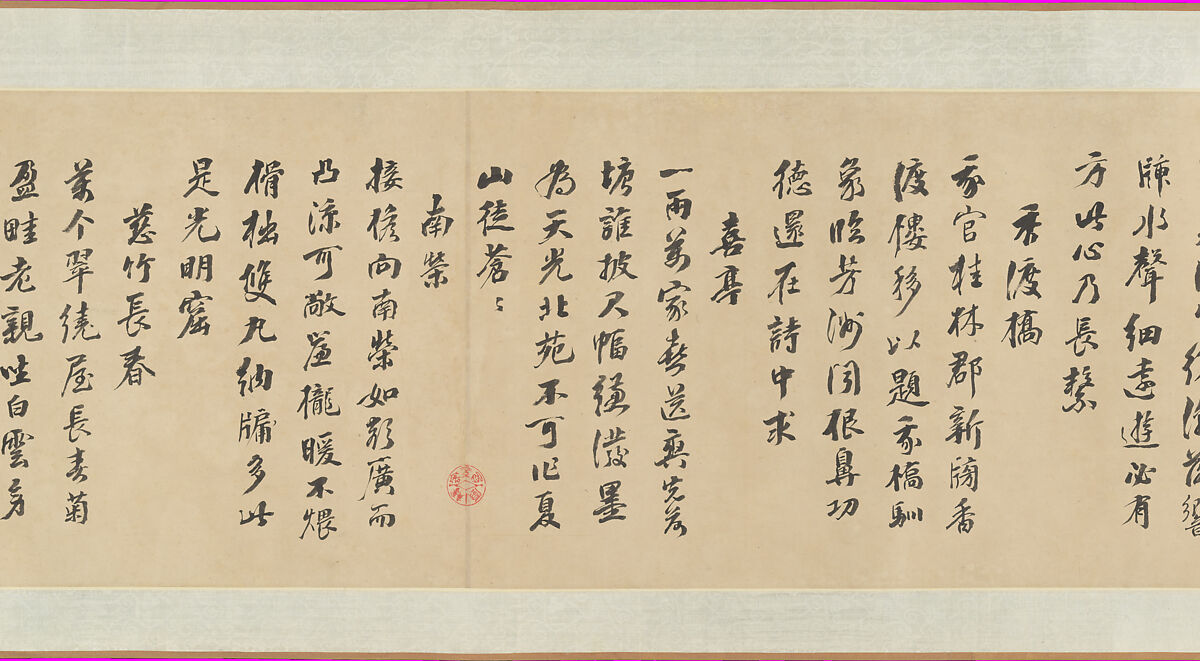 水聲細遠遊必有
方此心乃長繫
香渡橋
我官桂林郡新牓香
渡樓移以題我橋馴
象臨芳洲聞根鼻功
德還在詩中求
喜亭
一雨萬家喜送
塘誰披尺幅縑潑墨
為天光北苑不可作夏
山徒蒼〻
南榮
接檐向南榮如廣而
凸涼可敞簾櫳暖不煨
榾柮雙丸納牖多此
是光明窟
慈竹長春
萬个翠繞屋長春菊
盈畦老親坐白雲